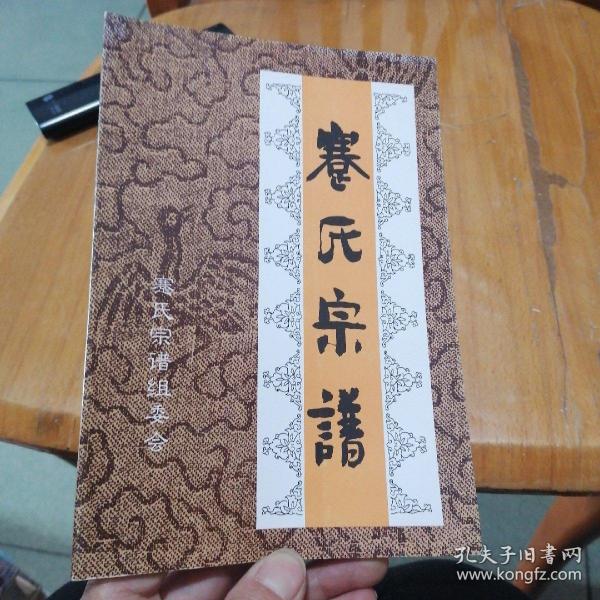 蹇氏宗譜
蹇氏宗谱组委会
孔夫子旧書网
www.kongfz.com